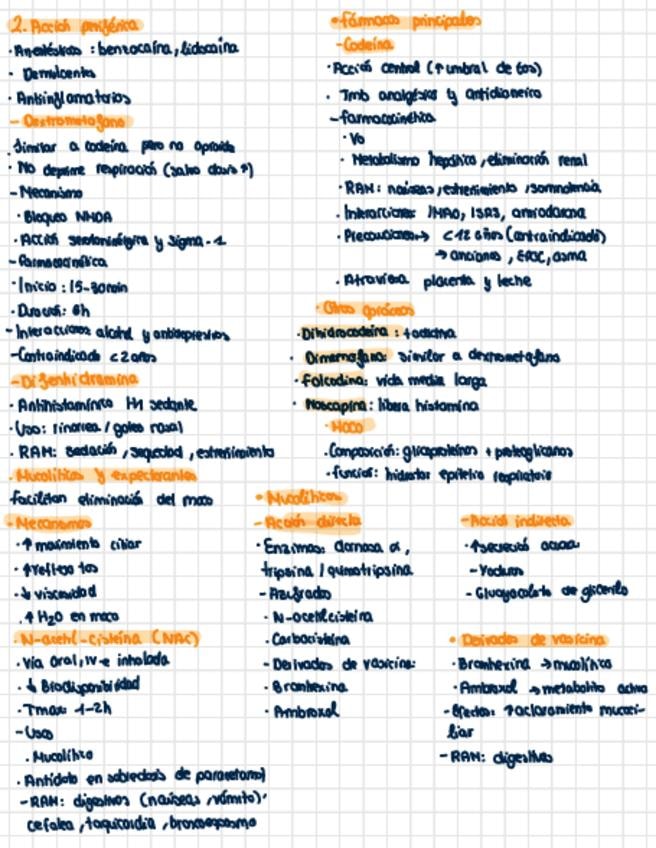 2. Acción periférica
· Anestésicos : benzocaína, lidocaína
· Demulcentes
· Antiinflamatorios
- Dextrometofano
· Similar a codeína pero no opioide
· No deprime respiración (salvo dosis ↑)
- Mecanismo
· Bloqueo NMDA
· Acción serotoninérgica y Sigma-1
- Farmacocinética
· Inicio : 15-30min
· Duración: 6h
- Interacciones alcohol y antidepresivos
- Contraindicado <2 años
- Difenhidramina
· Antihistamínico H1 sedante
· Uso: rinorrea / goteo nasal
· RAM: sedación, sequedad, estreñimiento
· Mucolíticos y expectorantes
facilitan eliminación del moco
- Mecanismos
· ↑ movimiento ciliar
· ↑ reflejo tos
· ↓ viscosidad
· ↑ H2O en moco
· N-acetil-cisteína (NAC)
· Vía oral, IV e inhalada
· ↓ Biodisponibilidad
· Tmax 1-2h
- Usos
· Mucolítico
· Antídoto en sobredosis de paracetamol
- RAM: digestivos (naúseas, vómito)
cefalea, taquicardia, broncoespasmo
• Fármacos principales
- Codeína
· Acción central (↑ umbral de tos)
· Tmb analgésica y antidiarreica
- farmacocinética
· Vo
· Metabolismo hepático, eliminación renal
· RAM: naúseas, estreñimiento, somnolencia
· Interacciones IMAO, ISRS, amiodarona
· Precauciones → <12 años (contraindicado)
→ ancianos, EPOC, asma
· Atraviesa placenta y leche
· Otros opiáceos
· Dihidrocodeína : + adictiva
· Dimemofano: similar a dextrometofano
· Folcodina: vida media larga
· Noscapina: libera histamina
· Moco
· Composición: glicoproteínas + proteoglicanos
· función: hidratar epitelio respiratorio
• Mucolíticos
- Acción directa
· Enzimas: dornasa α,
tripsina / quimotripsina
- Azufrados
· N-acetilcisteína
· Carbocisteína
- Derivados de vasicina:
· Bromhexina
· Ambroxol
- Acción indirecta
· ↑ secreción acuosa
- Yoduros
- Gluayacolato de glicerilo
• Derivados de vasicina
· Bromhexina → mucolítico
· Ambroxol → metabolito activo
- Efectos: ↑ aclaramiento mucoci-
liar
- RAM: digestivos